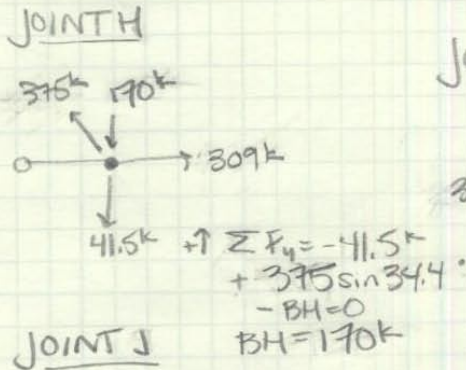 JOINT H
375k 170k
309k
41.5k +↑ ΣFy = -41.5k
+ 375 sin 34.4
- BH = 0
BH = 170k
JOINT J
JO